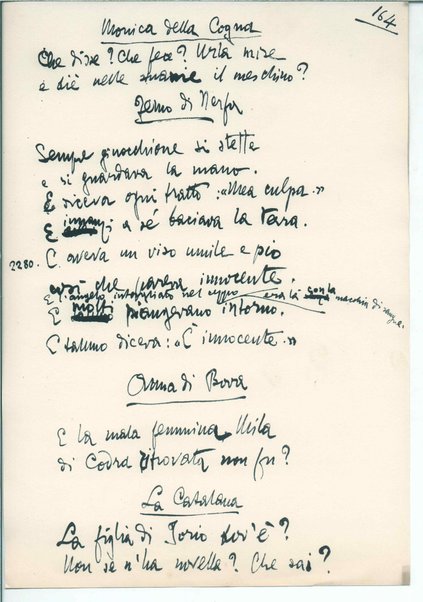 164
Monica della Cogna
Che disse? Che fece? Urla mise
e diè nelle smanie il meschino?
Femo di Nerfa
Sempre ginocchione si stette
e si guardava la mano.
E diceva ogni tratto: «Mea culpa.»
E innanzi a sé baciava la terra.
E aveva un viso umile e pio
2280.
così che pareva innocente.
E l'angelo intagliato nel ceppo era là con la macchia di sangue.
E molti piangevano intorno.
E taluno diceva: «È innocente.»
Anna di Bova
E la mala femmina, Mila
di Codra ritrovata non fu?
La Catalana
La figlia di Jorio dov'è?
Non se n'ha novella? Che sai?